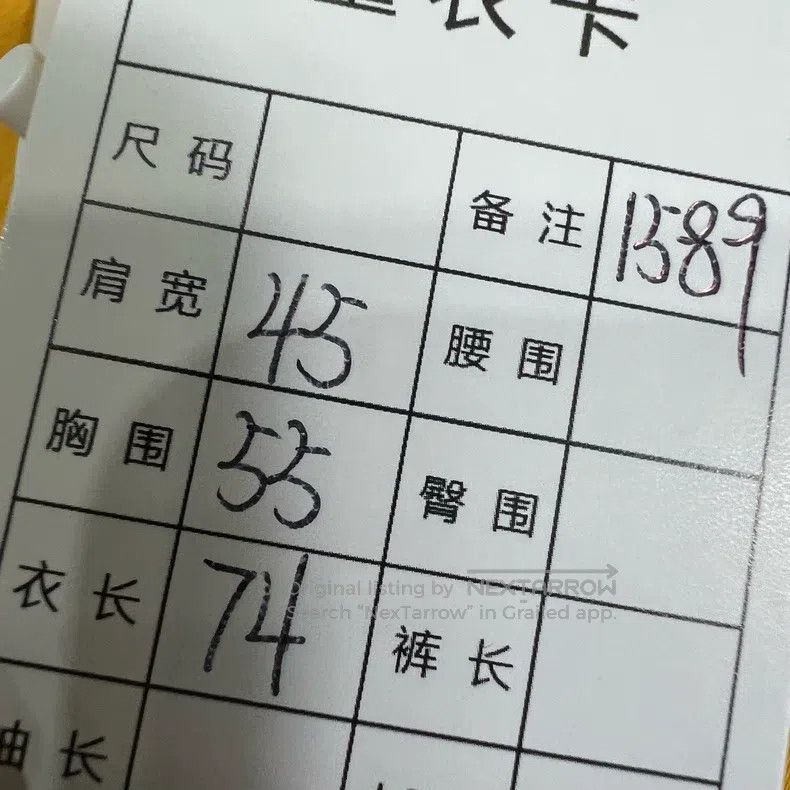 量衣卡
尺码 备注 1589
肩宽 45 腰围
胸围 55 臀围
衣长 74 裤长
Original listing by NEXTARROW
Search "NexTarrow" in Grailed app.
袖长